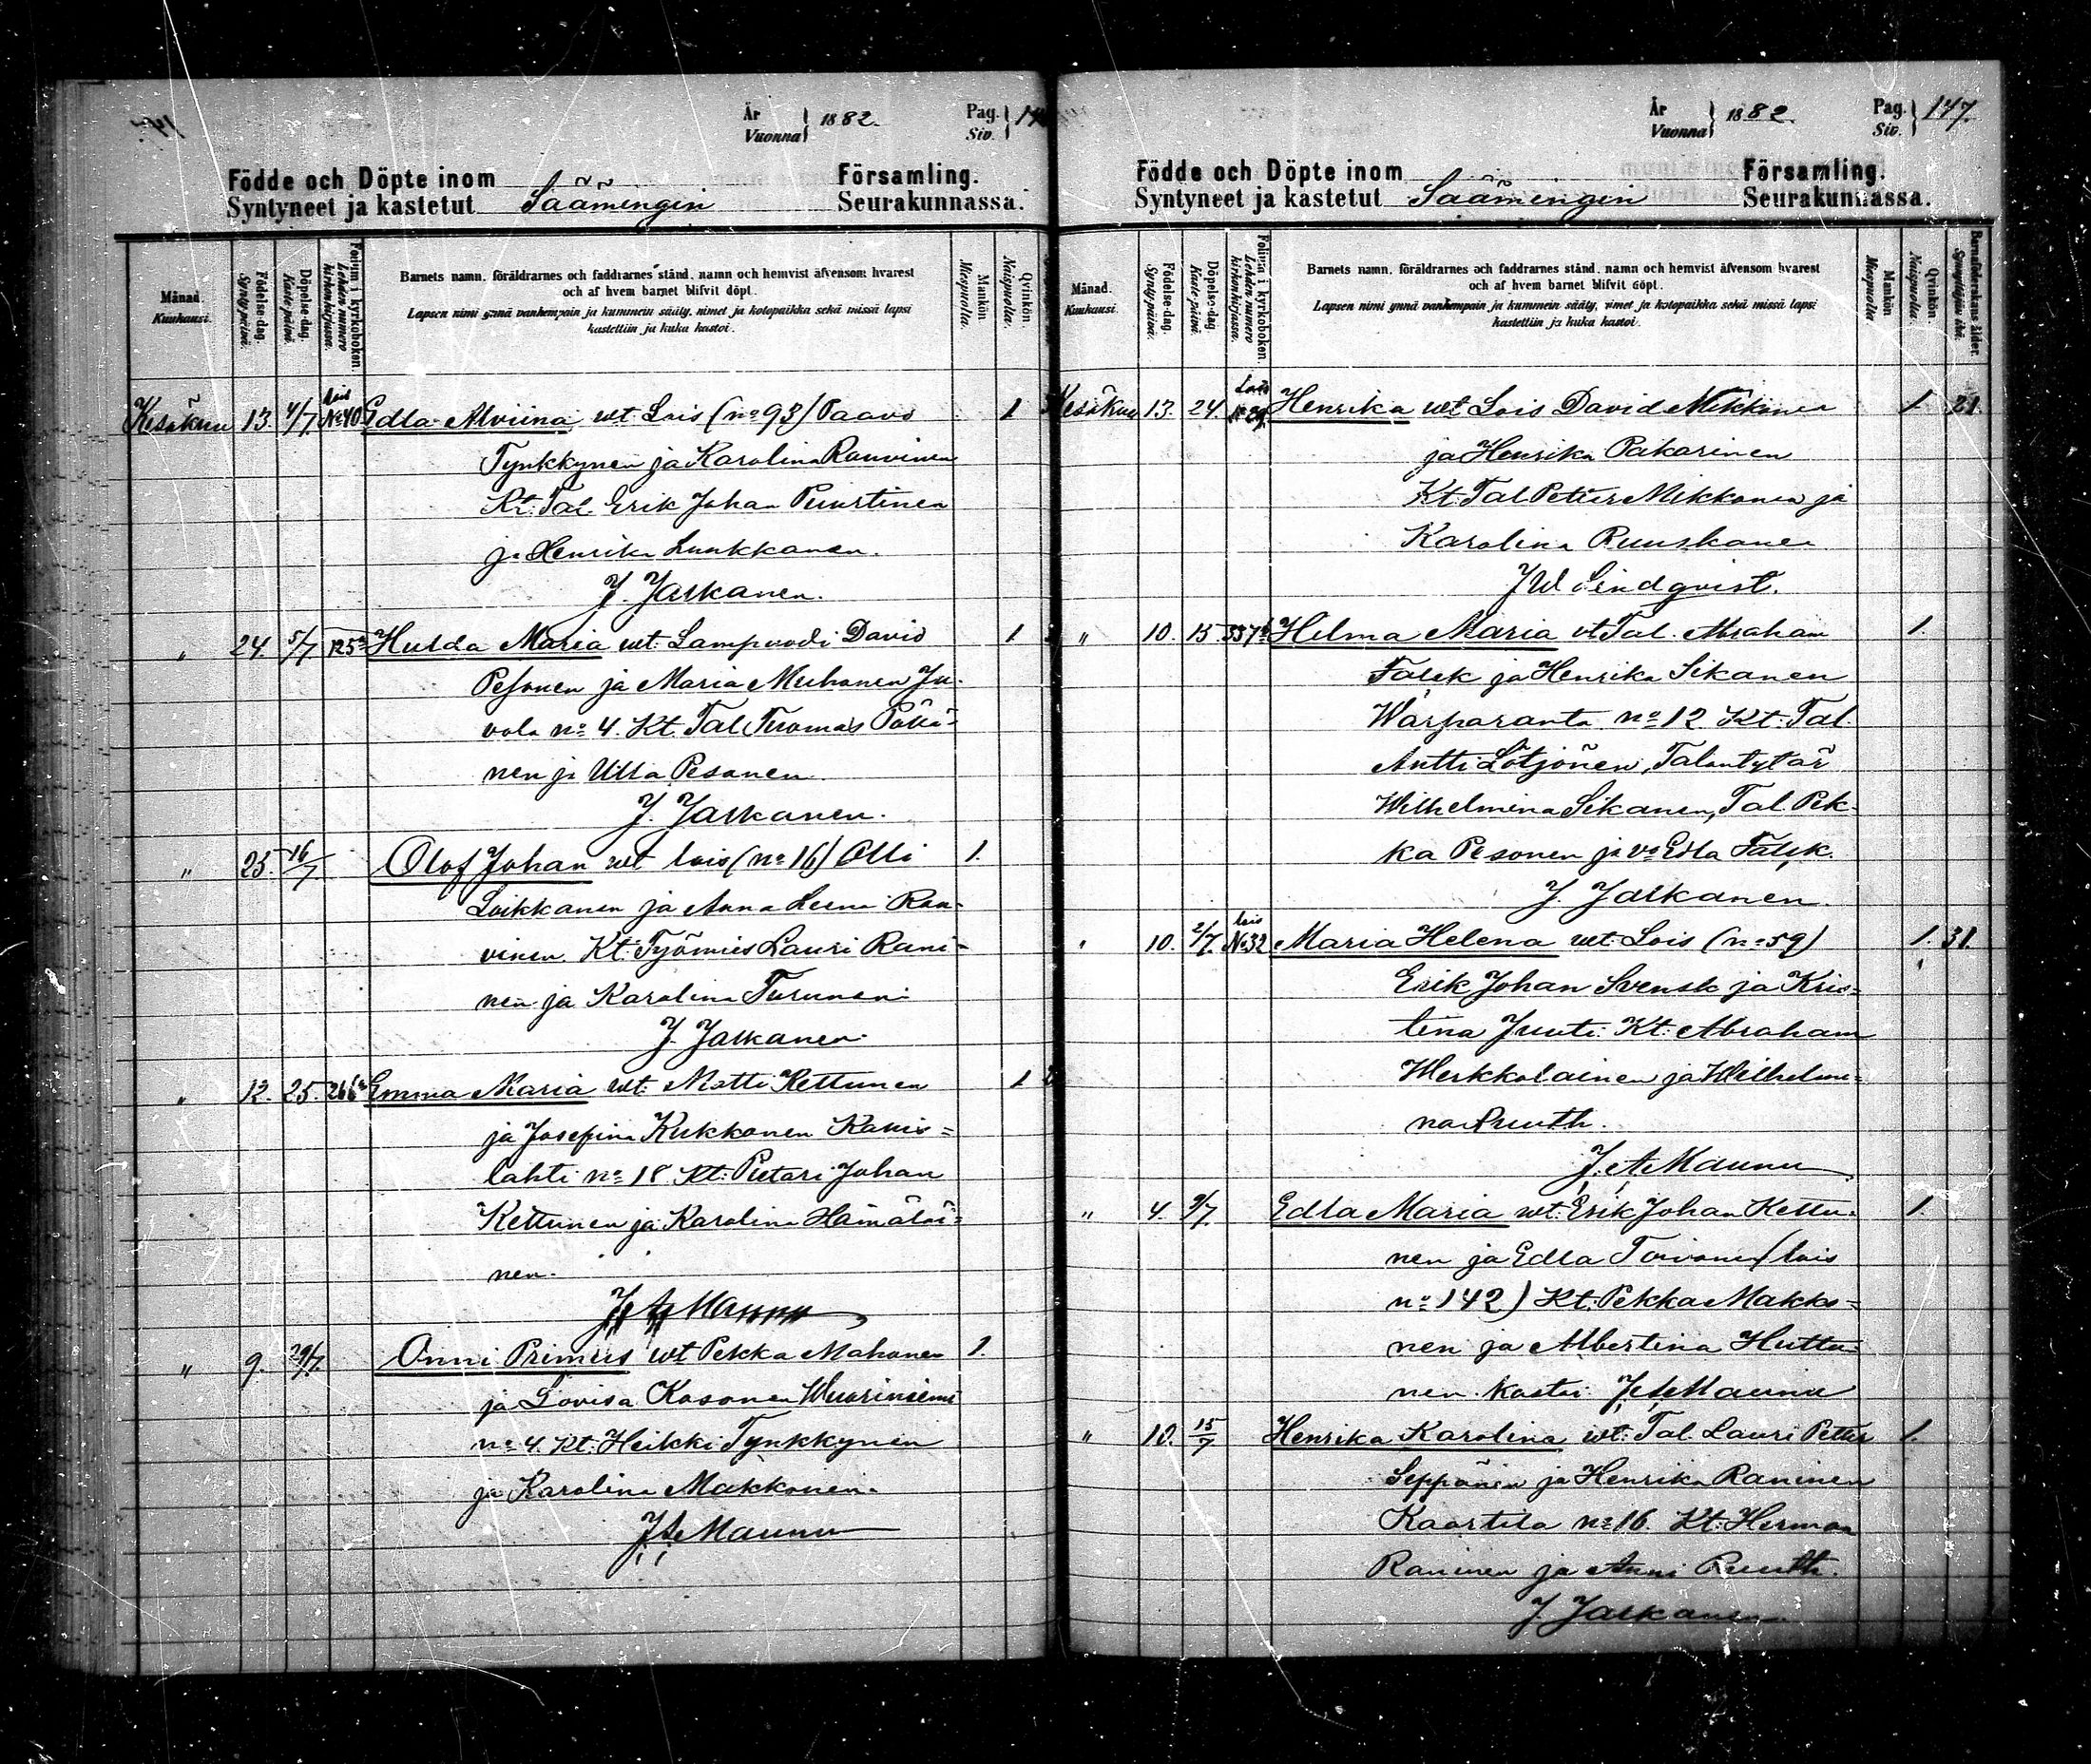 År
Vuonna } 1882.
Pag.
Siv. } 14
Födde och Döpte inom
Syntyneet ja kastetut Säämingin
Församling.
Seurakunnassa.
Månad.
Kuukausi.
Födelse-dag.
Synty-päivä.
Döpelse-dag.
Kaste-päivä.
Folium i kyrkoboken.
Lehden numero kirkonkirjassa.
Barnets namn, föräldrarnes och faddrarnes stånd, namn och hemvist äfvensom hvarest
och af hvem barnet blifvit döpt.
Lapsen nimi ynnä vanhempain ja kummein sääty, nimet ja kotopaikka sekä missä lapsi
kastettiin ja kuka kastoi.
Mankön.
Miespuolta.
Qvinkön.
Naispuolta.
Kesäkuu 13. 4/7 lois No 40 Edla Alviina wt. Lois (no 93) Paavo 1
Tynkkynen ja Karolina Rauvinen
Kt: Tal. Erik Johan Puurtinen
ja Henrika Luukkanen.
J. Jaskanen.
" 24. 5/7 125 Hulda Maria wt: Lampuodi David 1
Pesonen ja Maria Muhonen Ju-
vola no 4. Kt. Tal Tuomas Pöllä-
nen ja Ulla Pesonen
J. Jaskanen.
" 25. 16/7 Olof Johan wt lois (no 16) Olli 1.
Loikkanen ja Anna Leena Rau-
vinen Kt: Työmies Lauri Rani-
nen ja Karolina Turunen
J. Jaskanen
" 12. 25. 266 Emma Maria wt: Matti Kettunen 1
ja Josefina Kukkonen Kauis=
lahti no 18 Kt: Pietari Johan
Kettunen ja Karolina Hämäläi=
nen.
J. A. Maunu
" 9. 29/7. Onni Primus wt Pekka Mahonen 1.
ja Lovisa Kosonen Wuoriniemi
no 4. Kt: Heikki Tynkkynen
ja Karolina Makkonen.
J. A. Maunu
År
Vuonna } 1882.
Pag.
Siv. } 147.
Födde och Döpte inom
Syntyneet ja kastetut Säämingin
Församling.
Seurakunnassa.
Månad.
Kuukausi.
Födelse-dag.
Synty-päivä.
Döpelse-dag.
Kaste-päivä.
Folium i kyrkoboken.
Lehden numero kirkonkirjassa.
Barnets namn, föräldrarnes och faddrarnes stånd, namn och hemvist äfvensom hvarest
och af hvem barnet blifvit döpt.
Lapsen nimi ynnä vanhempain ja kummein sääty, nimet ja kotopaikka sekä missä lapsi
kastettiin ja kuka kastoi.
Mankön
Miespuolta
Qvinkön.
Naispuolta.
Barnföderskans ålder.
Synnyttäjän ikä.
Kesäkuu 13. 24. lois No 29 Henrika wt Lois David Mikkonen 1 21
ja Henrika Pakarinen
Kt: Tal Petter Mikkonen ja
Karolina Ruuskanen
J W Lindqvist.
" 10. 15 337 Helma Maria vt Tal. Abraham 1.
Falck ja Henrika Sikanen
Warparanta no 12 Kt: Tal.
Antti Lötjönen, Talontytär
Wilhelmina Sikanen, Tal. Pek-
ka Pesonen ja vo Edla Falck.
J. Jaskanen.
" 10. 2/7. lois No 32 Maria Helena wt: Lois (no 59) 1. 31.
Erik Johan Svensk ja Kris=
tina Juuti. Kt: Abraham
Herkkolainen ja Wilhelmi=
na Ruuth.
J. A Maunu
" 4. 9/7. Edla Maria wt: Erik Johan Kettu= 1.
nen ja Edla Toivonen (lois
no 142) Kt: Pekka Makko=
nen ja Albertina Huttu=
nen. kastoi J. A. Maunu
" 10. 15/7 Henrika Karolina wt: Tal. Lauri Petter 1.
Seppänen ja Henrika Raninen
Kaartila no 16. Kt: Herman
Raninen ja Anni Ruuth.
J. Jaskanen